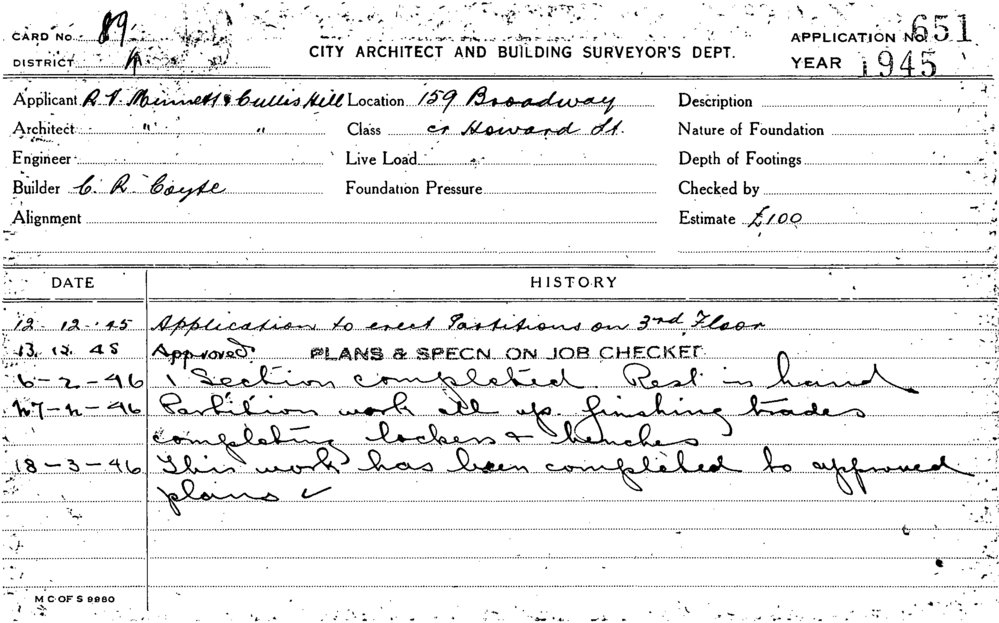 CARD No. 89
DISTRICT A
CITY ARCHITECT AND BUILDING SURVEYOR'S DEPT.
APPLICATION No 651
YEAR 1945
Applicant R V Minnett & Cullis Hill Location 159 Broadway Description
Architect " " Class cr Howard St. Nature of Foundation
Engineer Live Load Depth of Footings
Builder C. R. Foundation Pressure Checked by
Alignment Estimate £100
DATE HISTORY
12. 12. 45 Application to erect Partitions on 3rd Floor
13. 12. 45 Approved. PLANS & SPECN. ON JOB CHECKED
6-2-46 1 Section completed. Rest in hand
27-2-46 Partition work all up. finishing trades
completing lockers & benches
18-3-46 This work has been completed to approved
plans ✓
M C OF S 9980